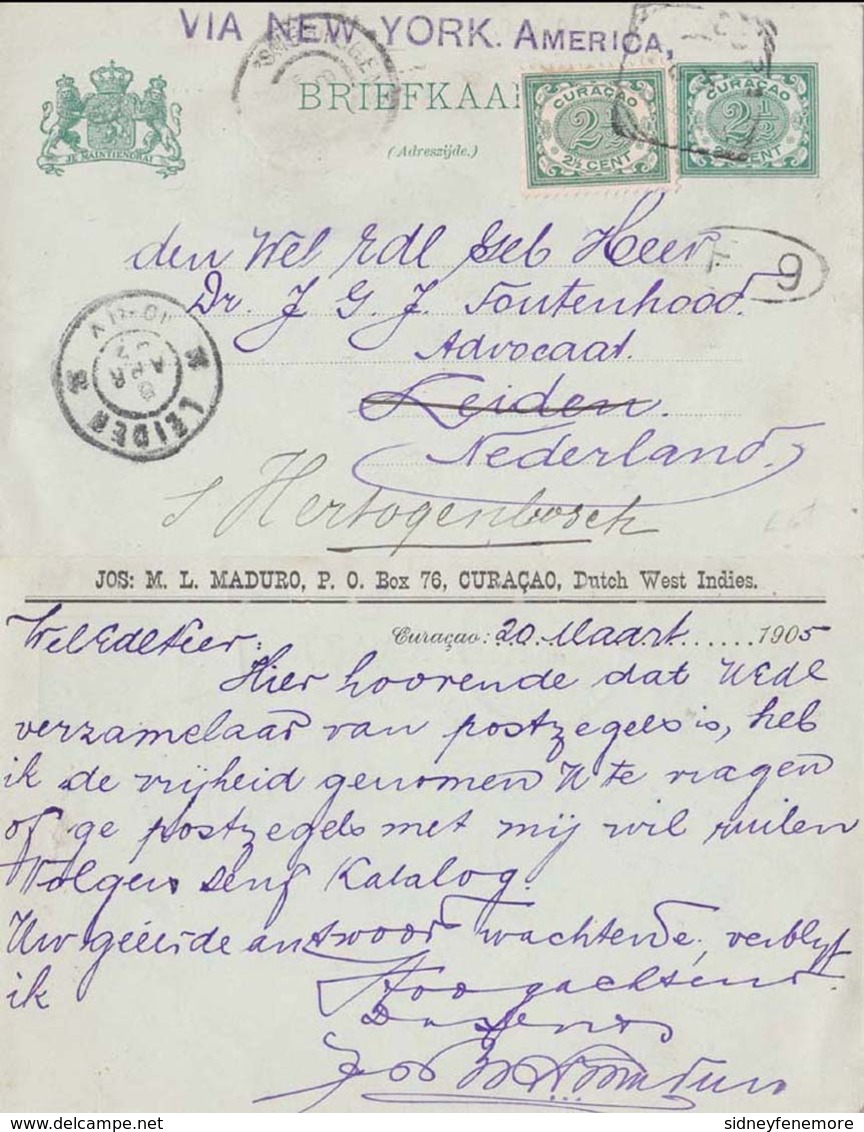 VIA NEW-YORK. AMERICA,
BRIEFKAA
(Adreszijde.)
JE MAINTIENDRAI
CURAÇAO
2½
2½ CENT
CURAÇAO
2½
CENT
den Wel Edl Geb Heer.
Dr. J G. J. Toutenhoofd.
Advocaat.
Leiden.
Nederland.
s Hertogenbosch
9
LEIDEN
10-11V
APR
JOS: M. L. MADURO, P. O. Box 76, CURAÇAO, Dutch West Indies.
Curaçao: 20 Maart 1905
WelEdlHeer:
Hier hoorende dat UEdl
verzamelaar van postzegels is, heb
ik de vrijheid genomen U te vragen
of ge postzegels met mij wil ruilen
Volgens Senf Katalog.
Uw geëerde antwoord wachtende, verblyf
ik
Hoogachtend
Jos M L Maduro
sidneyfenemore